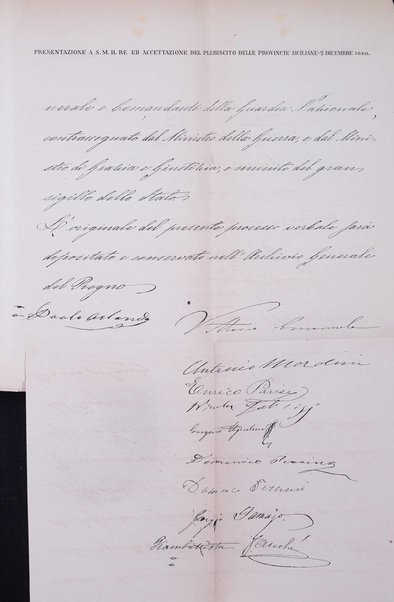 PRESENTAZIONE A S. M. IL RE ED ACCETTAZIONE DEL PLEBISCITO DELLE PROVINCIE SICILIANE-2 DICEMBRE 1860.
nerale e Comandante della Guardia Nazionale,
contrasegnato dal Ministro della Guerra, e dal Mini-
stro di Grazia e Giustizia, e munito del gran
sigillo dello Stato
L'originale del presente processo verbale sarà
depositato e conservato nell'Archivio Generale
del Regno
Paolo Orlando
Vittorio Emanuele
Antonio Mordini
Enrico Parisi
Nicola
Gregorio Ugdulena
Domenico Peranni
Domenico
Tamajo
Giambattista